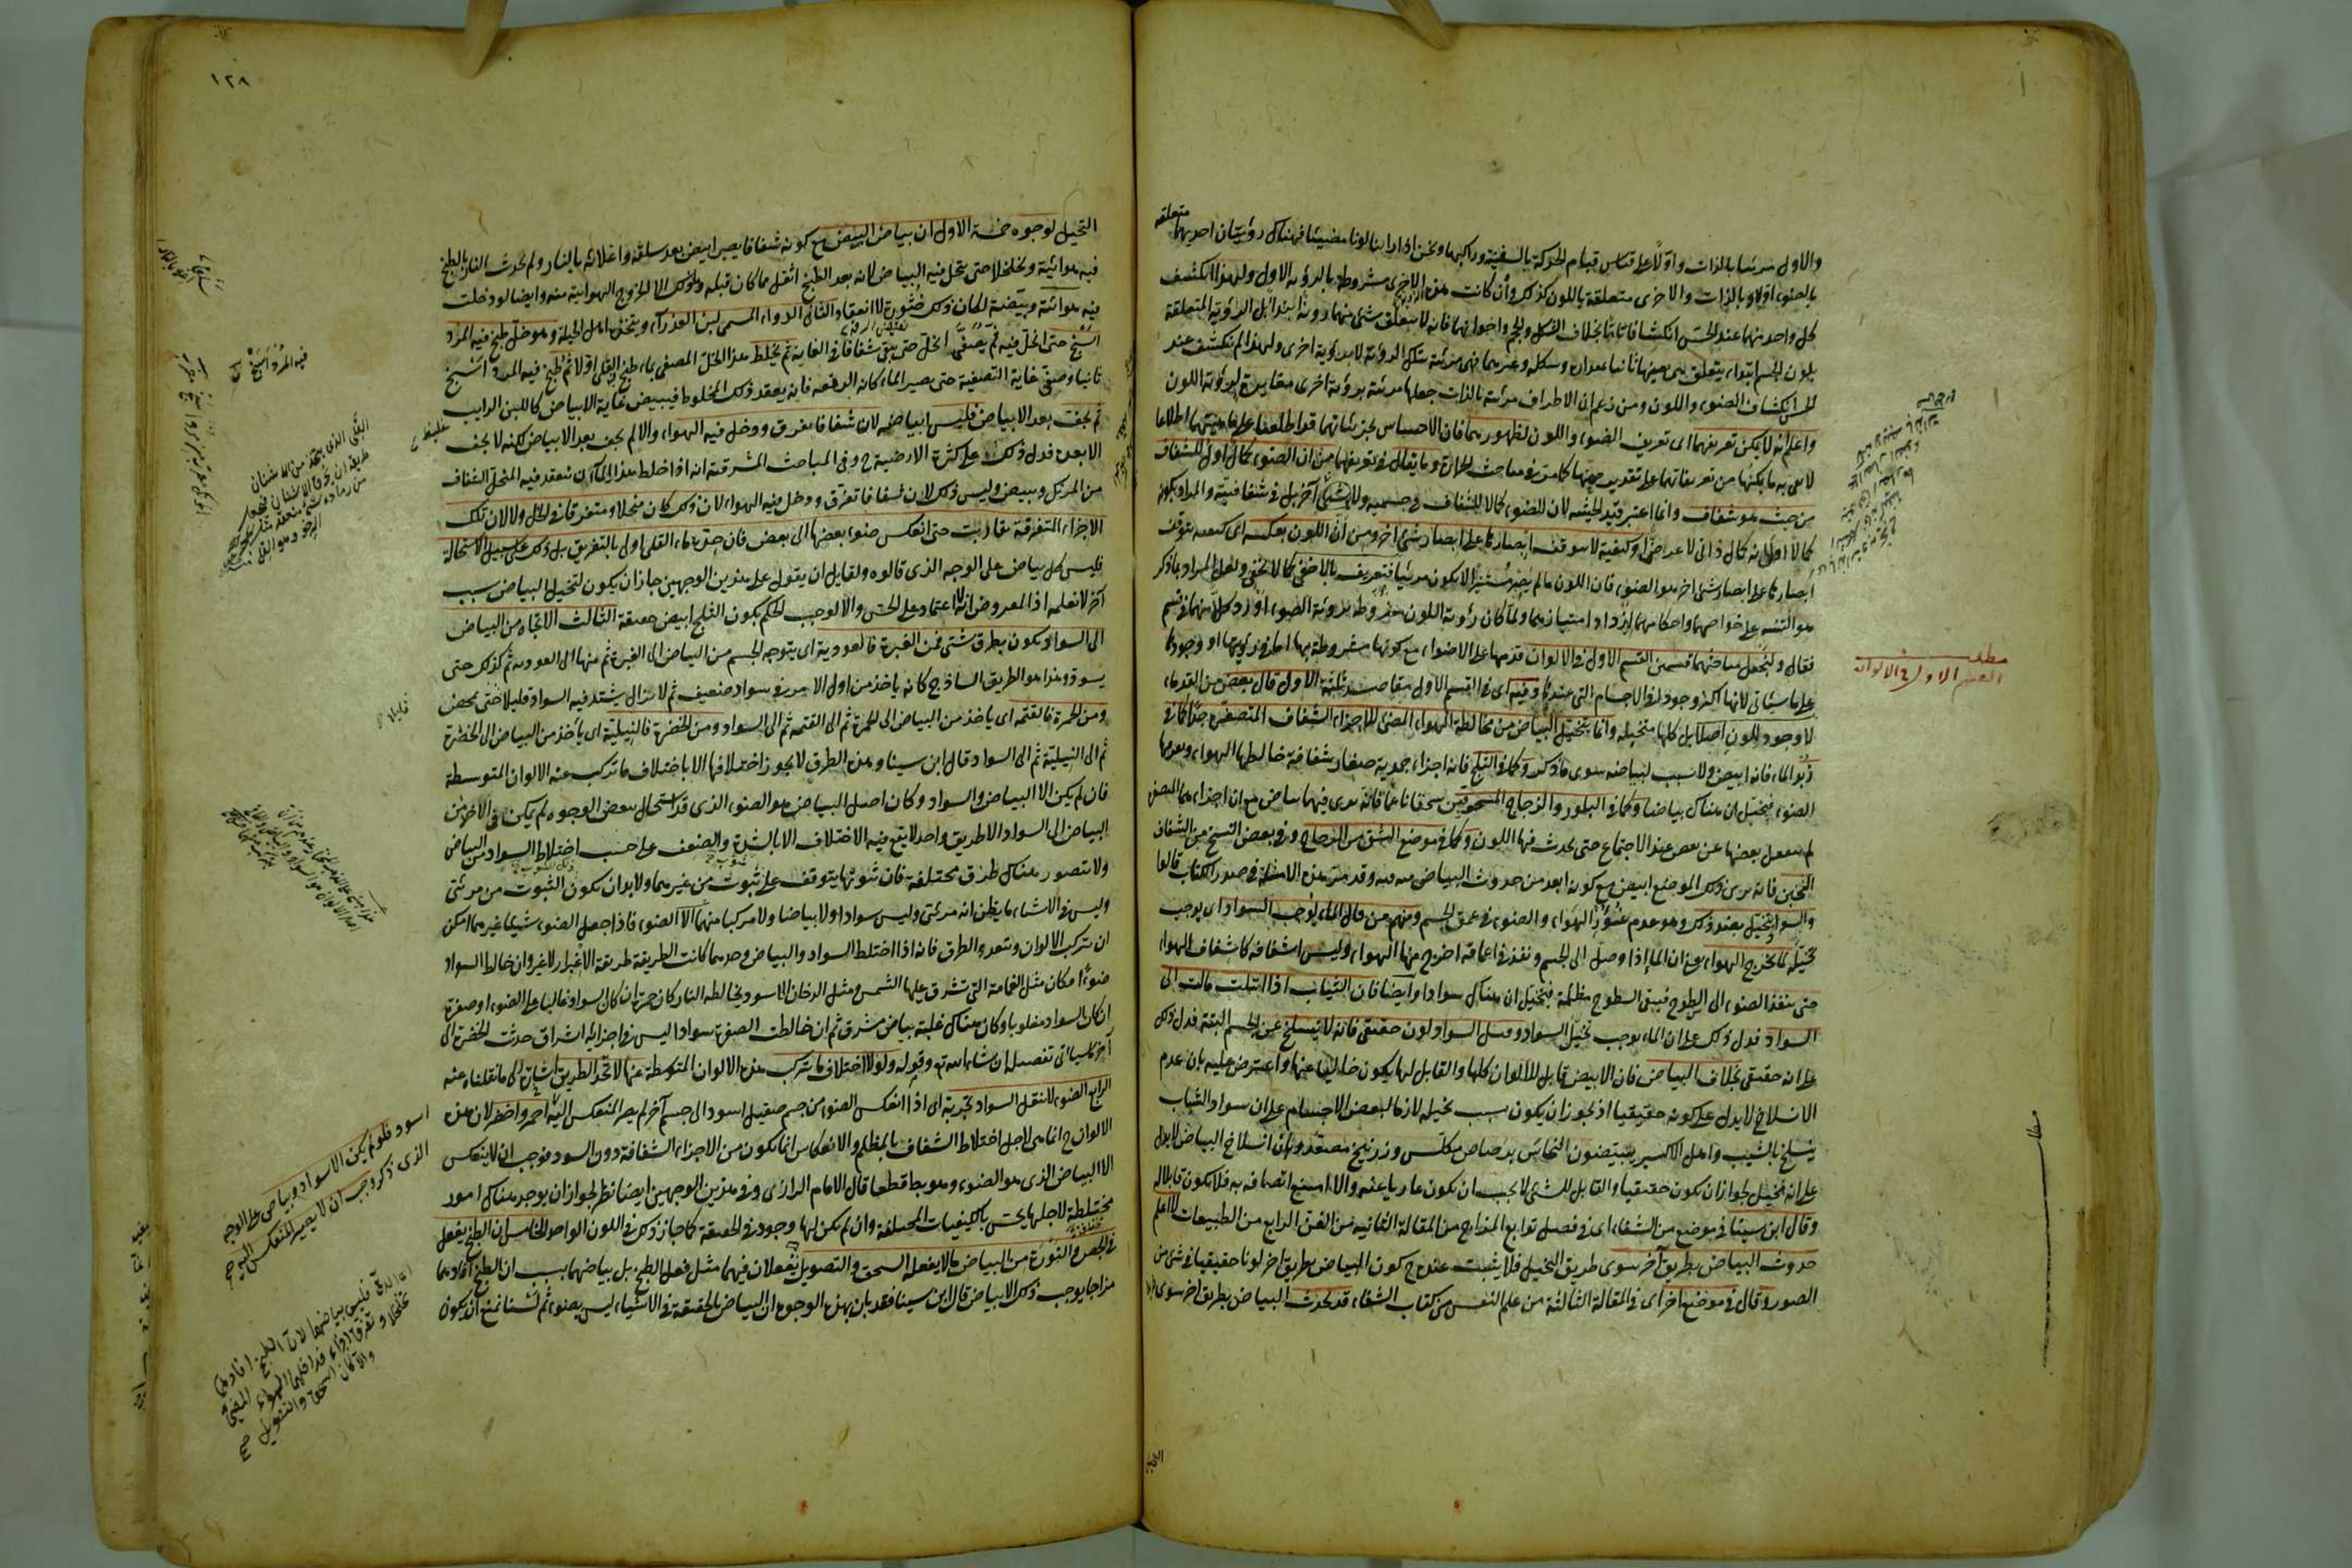 والاول مرئيا بالذات واولا على قياس قيام الحركة بالسفينة وراكبها ونحن اذا رأينا لونا مضيئا فهناك رؤيتان احديهما متعلقة
بالضوء اولا وبالذات والاخرى متعلقة باللون كذلك وان كانت هذه الاخرى مشروطة بالرؤية الاولى ولهذا انكشف
كل واحد منهما عند الحس انكشافا تاما بخلاف الشكل والحجم واخواتهما فانه لا يتعلق بشئ منها رؤية ابتداء بل الرؤية المتعلقة
بلون الجسم ابتداء يتعلق هى بعينها ثانيا بمقداره وشكله وغيرهما فهى مرئية بتلك الرؤية لا برؤية اخرى ولهذا لم تنكشف عند
الحس انكشاف الضوء واللون ومن زعم ان الاطراف مرئية بالذات جعلها مرئية برؤية اخرى مغايرة لرؤية اللون
واعلم انه لا يمكن تعريفهما اى تعريف الضوء واللون لظهورهما فان الاحساس بجزئياتهما قد اطلعنا على ماهيتهما اطلاعا
لا يفى به ما يمكننا من تعريفاتهما على تقدير صحتها كما مر فى مباحث الحرارة وما يقال فى تعريفهما من ان الضوء كمال اول للشفاف
من حيث هو شفاف وانما اعتبر قيد الحيثية لان الضوء كمالا للشفاف فى جسميته ولا فى شئ آخر بل فى شفافيته والمراد بكونه
كمالا اولا انه كمال ذاتى لا عرضى او كيفية لا يتوقف ابصارها على ابصار شئ اخر ومن ان اللون بعكسه اى كيفية يتوقف
ابصارها على ابصار شئ اخر هو الضوء فان اللون ما لم يصر مستنيرا لا يكون مرئيا فتعريف بالاخفى كما لا يخفى ولعل المراد بما ذكر
هو التنبيه على خواصهما واحكامهما ليزداد امتيازهما ولما كان رؤية اللون مشروطة برؤية الضوء اورد كلا منهما فى قسم
فقال ولنجعل مباحثهما قسمين القسم الاول فى الالوان قدمها على الاضواء مع كونها مشروطة بها اما فى رؤيتها او وجودها
على ما سيأتى لانها اكثر وجودا فى الاجسام التى عندنا وفيه اى فى القسم الاول مقاصد ثلثة الاول قال بعض من القدماء
لا وجود للون اصلا بل كلها متخيلة وانما يتخيل البياض من مخالطة الهواء المضئ للاجزاء الشفاف المتصغرة جدا كما فى
زبد الماء فانه ابيض ولا سبب لبياضه سوى ما ذكر وكما فى الثلج فانه اجزاء جمدية صغار شفافة خالطها الهواء ونفذ فيها
الضوء فيتخيل ان هناك بياضا وكما فى البلور والزجاج المسحوقين سحقا ناعما فانه يرى فيهما بياض مع ان اجزاءهما المتصغرة
لم ينفعل بعضها عن بعض عند الاجتماع حتى يحدث فيها اللون وكما فى موضع الشق من الزجاج وفى بعض النسخ من الشفاف
الثخين فانه يرى ذلك الموضع ابيض مع كونه ابعد من حدوث البياض فيه وقد مر هذه الامثلة فى صدر الكتاب قالوا
والسواد يتخيل بضد ذلك وهو عدم غؤور الهواء والضوء فى عمق الجسم ومنهم من قال الماء يوجب السواد اى يوجب
تخيله لما يخرج الهواء يعنى ان الماء اذا وصل الى الجسم ونفذ فى اعماقه اخرج منها الهواء وليس اشفافه كاشفاف الهواء
حتى ينفذ الضوء الى السطوح فيبقى السطوح مظلمة فيتخيل ان هناك سوادا وايضا فان الثياب اذا ابتلت مالت الى
السواد فدل ذلك على ان الماء يوجب تخيل السواد وقيل السواد لون حقيقى فانه لا ينسلخ عن الجسم البتة فدل ذلك
على انه حقيقى بخلاف البياض فان الابيض قابل للالوان كلها والقابل لها يكون خاليا عنها واعترض عليه بان عدم
الانسلاخ لا يدل على كونه حقيقيا اذ يجوز ان يكون سبب تخيله لازما لبعض الاجسام على ان سواد الشباب
ينسلخ بالشيب واهل الاكسير يبيضون النحاس برصاص مكلس وزرنيخ مصعد وبان انسلاخ البياض لا يدل
على انه تخيل لجواز ان يكون حقيقيا والقابل للشئ لا يجب ان يكون عاريا عنه والا امتنع اتصافه به فلا يكون قابلا له
وقال ابن سينا فى موضع من الشفاء اى فى فصل توابع المزاج من المقالة الثانية من الفن الرابع من الطبيعيات لا اعلم
حدوث البياض بطريق آخر سوى طريق التخيل فلا يثبت عنده ح كون البياض بطريق اخر لونا حقيقيا فى شئ من
الصور وقال فى موضع اخر اى فى المقالة الثالثة من علم النفس من كتاب الشفاء قد يحدث البياض بطريق اخر سوى
مطلب
القسم الاول فى الالوان
١٢٨
التخيل لوجوه خمسة الاول ان بياض البيض مع كونه شفافا يصير ابيض بعد سلقه واغلائه بالنار ولم يحدث النار بالطبخ
فيه هوائية وتخلخلا حتى يتخيل فيه البياض لانه بعد الطبخ اثقل مما كان قبله وما ذلك الا لخروج الهوائية منه وايضا لو دخلت
فيه هوائية وبيضته لكان ذلك خثورة لا انعقادا الثانى الدواء المسمى لبن العذراء ويتخذ اهل الحيلة وهو خل طبخ فيه المرد
اسنج حتى انحل فيه ثم يصفى الخل حتى يبقى شفافا فى الغاية ثم يخلط هذا الخل المصفى بماء طبخ فيه القلى اولا ثم طبخ فيه المرد اسنج
ثانيا وصفى غاية التصفية حتى يصير الماء كانه الدمعة فانه يعقد ذلك المخلوط فيبيض غاية الابيضاض كاللبن الرايب
ثم يجف بعد الابيضاض فليس ابيضاضه لان شفافا تفرق ودخل فيه الهواء والا لم يجف بعد الابيضاض لكنه لا يجف
الا بعده فدل ذلك على كثرة الارضية ح وفى المباحث المشرقية انه اذا خلط هذا الماآن ينعقد فيه المنحل الشفاف
من المرتك ويبيض وليس ذلك لان شفافا تفرق ودخل فيه الهواء لان ذلك كان منحلا ومتفرقا فى الخل ولا لان تلك
الاجزاء المتفرقة تقاربت حتى انعكس ضوء بعضها الى بعض فان حدة ماء القلى اولى بالتفريق بل ذلك على سبيل الاستحالة
فليس كل بياض على الوجه الذى قالوه ولقايل ان يقول على هذين الوجهين جاز ان يكون لتخيل البياض سبب
آخر لا نعلمه اذ المعروض انه لا اعتماد على الحس والا لوجب الحكم بكون الثلج ابيض حقيقة الثالث الاتجاه من البياض
الى السواد يكون بطرق شتى فمن الغبرة فالعودية اى يتوجه الجسم من البياض الى الغبرة ثم منها الى العودية ثم كذلك حتى
يسود وهذا هو الطريق الساذج كانه ياخذ من اول الامر فى سواد ضعيف ثم لا يزال يشتد فيه السواد قليلا حتى يمحض
ومن الحمرة فالقتمة اى ياخذ من البياض الى الحمرة ثم الى القتمة ثم الى السواد ومن الخضرة فالنيلية اى يأخذ من البياض الى الخضرة
ثم الى النيلية ثم الى السواد قال ابن سينا وهذه الطرق لا يجوز اختلافها الا باختلاف ما تركب عنه الالوان المتوسطة
فان لم يكن الا البياض والسواد وكان اصل البياض هو الضوء الذى قد استحال ببعض الوجوه لم يكن فى الاخذ من
البياض الى السواد الا طريق واحد لا يقع فيه الاختلاف الا بالشدة والضعف على حسب اختلاط السواد من البياض
ولا يتصور هناك طرق مختلفة فان ثبوتها يتوقف على ثبوت من غيرهما ولا بد ان يكون الشوب من مرئى
وليس فى الاشياء ما يظن انه مرئى وليس سوادا ولا بياضا ولا مركبا منهما الا الضوء فاذا جعل الضوء شيئا غيرهما امكن
ان يتركب الالوان ويتعدد الطرق فانه اذا اختلط السواد والبياض وحدهما كانت الطريقة طريقة الاغبرار لا غير وان خالط السواد
ضوءا مكان مثل الغمامة التى تشرق عليها الشمس ومثل الدخان الاسود يخالطه النار كان حمرة ان كان السواد غالبا على الضوء او صفرة
ان كان السواد مغلوبا وكان هناك غلبة بياض مشرق ثم ان خالطت الصفرة سوادا ليس فى اجزائه اشراق حدثت الخضرة الى
آخر ما سيأتى تفصيله ان شاء الله تعالى وقوله ولولا اختلاف ما يتركب هذه الالوان المتوسطة عنها لاتحد الطريق اشارة الى ما نقلناه عنه
الرابع الضوء لا ينقل السواد بتجربة اى اذا انعكس الضوء من جسم صقيل اسود الى جسم آخر لم يصر المنعكس اليه احمر واخضر لان هذه
الالوان ح انما هى لاجل اختلاط الشفاف بالمظلم والانعكاس انما يكون من الاجزاء الشفافة دون السود فوجب ان لا ينعكس
الا البياض الذى هو الضوء وهو بط قطعا قال الامام الرازى وفى هذين الوجهين ايضا نظر لجواز ان يوجد هناك امور
مختلطة لاجلها يحس بالكيفيات المختلفة وان لم يكن لها وجود فى الحقيقة كما جاز ذلك فى اللون الواحد الخامس ان الطبخ يفعل
فى الجص والنورة من البياض ما لا يفعله السحق والتصويل يفعلان فيهما مثل فعل الطبخ بل بياضهما بسبب ان الطبخ افادهما
مزاجا يوجب ذلك الابيضاض قال ابن سينا فقد بان بهذه الوجوه ان البياض بالحقيقة فى الاشياء ليس بضوء ثم لسنا نمنع ان يكون
اسود فلو لم يكن الا سواد وبياض على الوجه
الذى ذكر وجب ان لا يصير المنعكس اليه صح